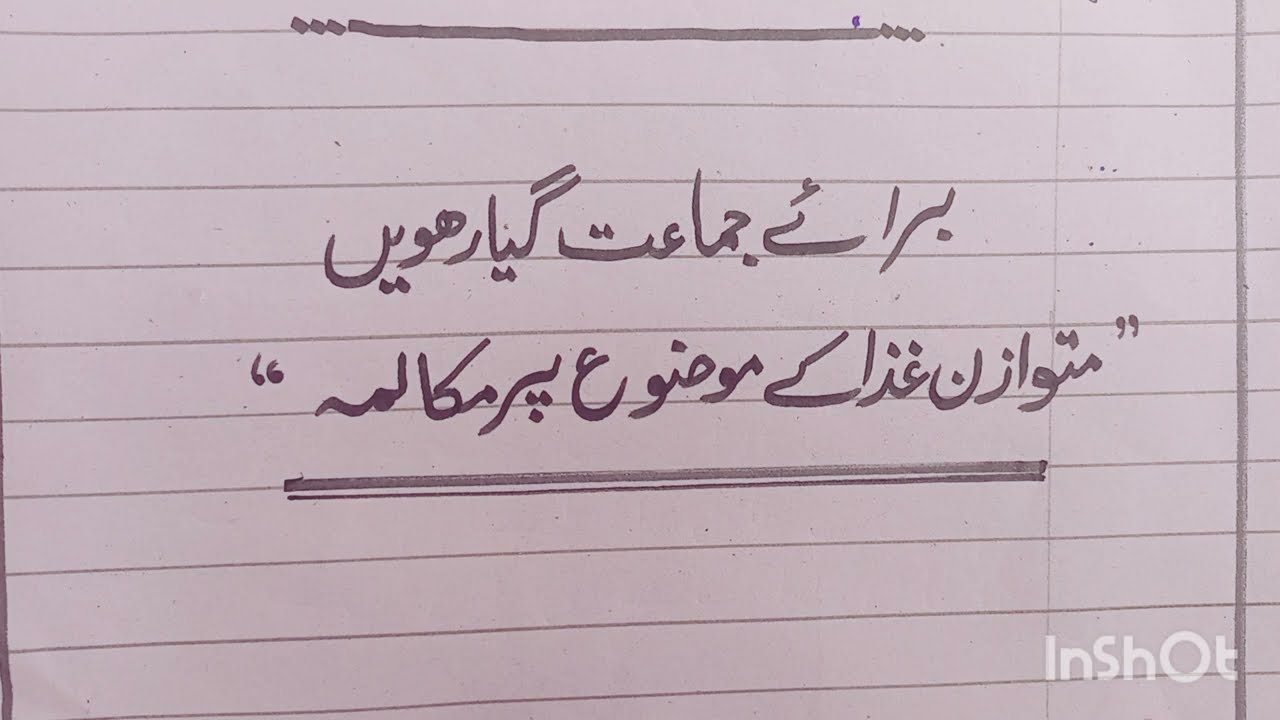 برائے جماعت گیارھویں
”متوازن غذا کے موضوع پر مکالمہ“
InShOt